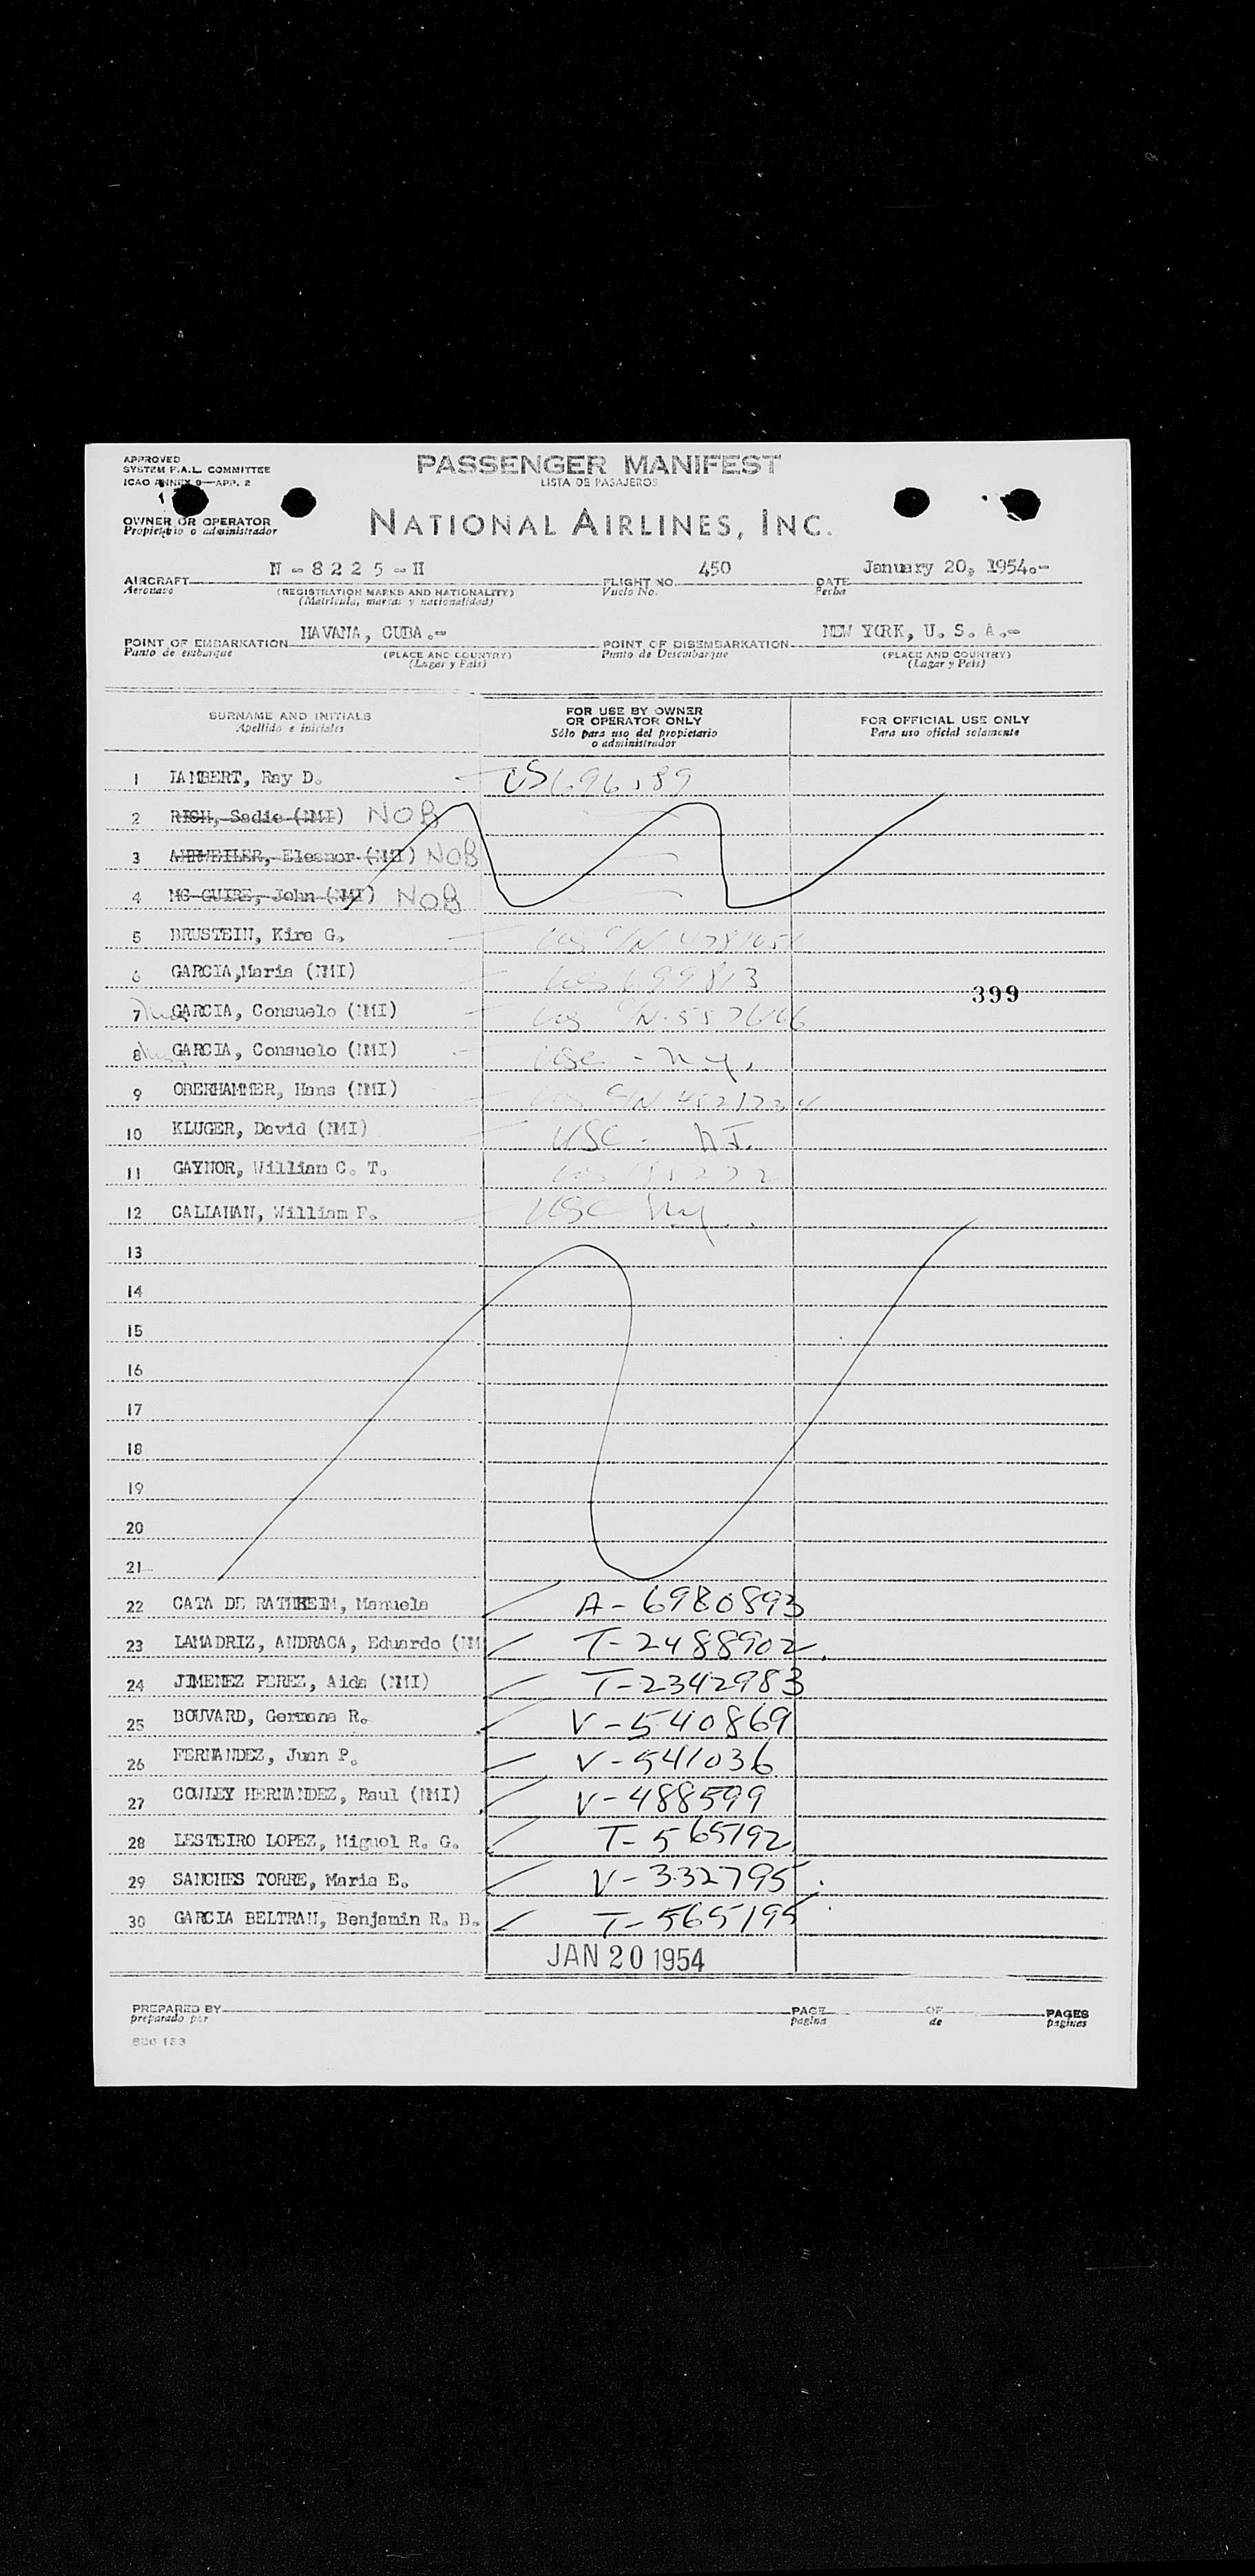 APPROVED
SYSTEM F.A.L. COMMITTEE
ICAO ANNEX 9—APP. 2
PASSENGER MANIFEST
LISTA DE PASAJEROS
OWNER OR OPERATOR
Propietario o administrador
NATIONAL AIRLINES, INC.
AIRCRAFT N - 8 2 2 5 - H FLIGHT NO. 450 DATE January 20, 1954.-
Aeronave (REGISTRATION MARKS AND NATIONALITY) Vuelo No. Fecha
(Matricula, marcas y nacionalidad)
POINT OF EMBARKATION HAVANA, CUBA.- POINT OF DISEMBARKATION NEW YORK, U. S. A.-
Punto de embarque (PLACE AND COUNTRY) Punto de Desembarque (PLACE AND COUNTRY)
(Lugar y País) (Lugar y País)
SURNAME AND INITIALS
Apellido e iniciales
FOR USE BY OWNER
OR OPERATOR ONLY
Sólo para uso del propietario
o administrador
FOR OFFICIAL USE ONLY
Para uso oficial solamente
1 LAMBERT, Ray D.
2 RICH, Sadie (NMI) NOB
3 Eleanor (NMI) NOB
4 MC GUIRE, John (NMI) NOB
5 BRUSTEIN, Kira G.
6 GARCIA,Maria (NMI)
399
7 GARCIA, Consuelo (NMI)
8 GARCIA, Consuelo (NMI) USC - N.Y.
9 OBERHAMMER, Hans (NMI)
10 KLUGER, David (NMI) USC - N.J.
11 GAYNOR, William C. T.
12 CALLAHAN, William F. USC NY.
13
14
15
16
17
18
19
20
21
22 CATA DE RATHHEIM, Manuela A-6980893
23 LAMADRIZ, ANDRACA, Eduardo (NM T-2488902
24 JIMENEZ PEREZ, Aida (NMI) T-2342983
25 BOUVARD, Germana R. V-540869
26 FERNANDEZ, Juan P. V-541036
27 COWLEY HERNANDEZ, Raul (NMI) V-488599
28 LESTEIRO LOPEZ, Miguel R. G. T-565192
29 SANCHES TORRE, Maria E. V-332795
30 GARCIA BELTRAN, Benjamin R. B. T-565195
JAN 20 1954
PREPARED BY PAGE OF PAGES
preparado por pagina de paginas